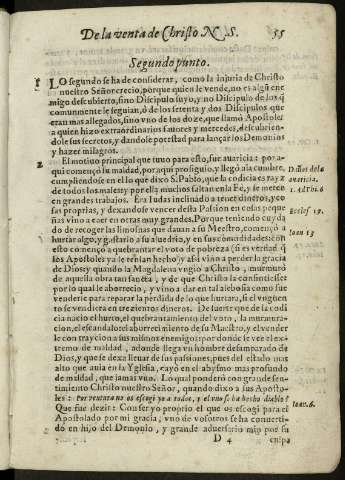 De la venta de Christo N. S. 55
Segundo punto.
1 LO segundo se ha de considerar, como la injuria de Christo
nuestro Señor crecio, porque quien le vende, no es algũ ene
migo descubierto, sino Dicipulo suyo, y no Dicipulo de los q̃
comunmente le seguian, ó de los setenta y dos Discipulos que
eran mas allegados, sino vno de los doze, que llamó Apostoles
a quien hizo extraordinarios fauores y mercedes, descubrien-
dole sus secretos, y dandole potestad para lançar los Demonios
y hazer milagros.
2 El motiuo principal que tuuo para esto, fue auaricia: por a-
qui començó su maldad, por aqui prosiguio, y llegó a la cumbre,
cumpliendose en el lo que dixo S. Pablo, que la codicia es rayz
de todos los males: y por ella muchos faltan en la Fé, y se meten
en grandes trabajos. Era Iudas inclinado a tener dineros, y co
sas proprias, y dexandose vencer desta Passion en cosas peque
ñas vino a caer en otras muy grandes. Porque teniendo cuyda
do de recoger las limosnas que dauan a su Maestro, començó a
hurtar algo, y gastarlo a su aluedrio, y en sus comodidades: en
esto començó a quebrantar el voto de pobreza (si es verdad q̃
los Apostoles ya le tenian hecho) y assi vino a perder la gracia
de Dios: y quando la Magdalena vngio a Christo, murmuró
de aquella obra tan sancta, y de que Christo la consintiesse:
por lo qual le aborrecio, y vino a dar en tal aleuosia como fue
venderle para reparar la perdida de lo que hurtara, si el vnguen
to se vendiera en trezientos dineros. De suerte que de la cod
cia nacio el hurto, el quebrantamiento del voto, la murmura-
cion, el escandalo el aborrecimiento de su Maestro, y el vender
le con traycion a sus mismos enemigos: por donde se vee el ex-
tremo de maldad, adonde llega vn hombre desamparado de
Dios, y que se dexa lleuar de sus passiones, pues del estado mas
alto que auia en la Yglesia, cayó en el abysmo mas profundo
de maldad, que jamas vuo. Lo qual ponderó con grande sen-
timiento Christo nuestro Señor, quando dixo a sus Aposto-
les: Por ventura no os escogi yo a todos, y el vno se ha hecho diablo?
Que fue dezir: Con ser yo proprio el que os escogi para el
Apostolado por mi gracia, vno de vosotros se ha conuerti-
do en hijo del Demonio, y grande aduersario mio por su
D 4 culpa
Daños de la
auaricia.
1. Ad Thi. 6
Eccles. 19.
Ioan 13
Ioan. 6.